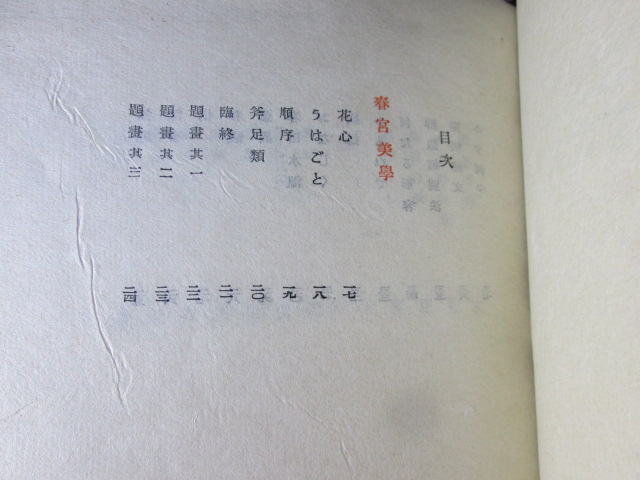 目次
春宮美學
花心 一七
うはごと 一八
順序 一九
斧足類 二〇
臨終 二一
題畫其一 二二
題畫其二 二三
題畫其三 二四